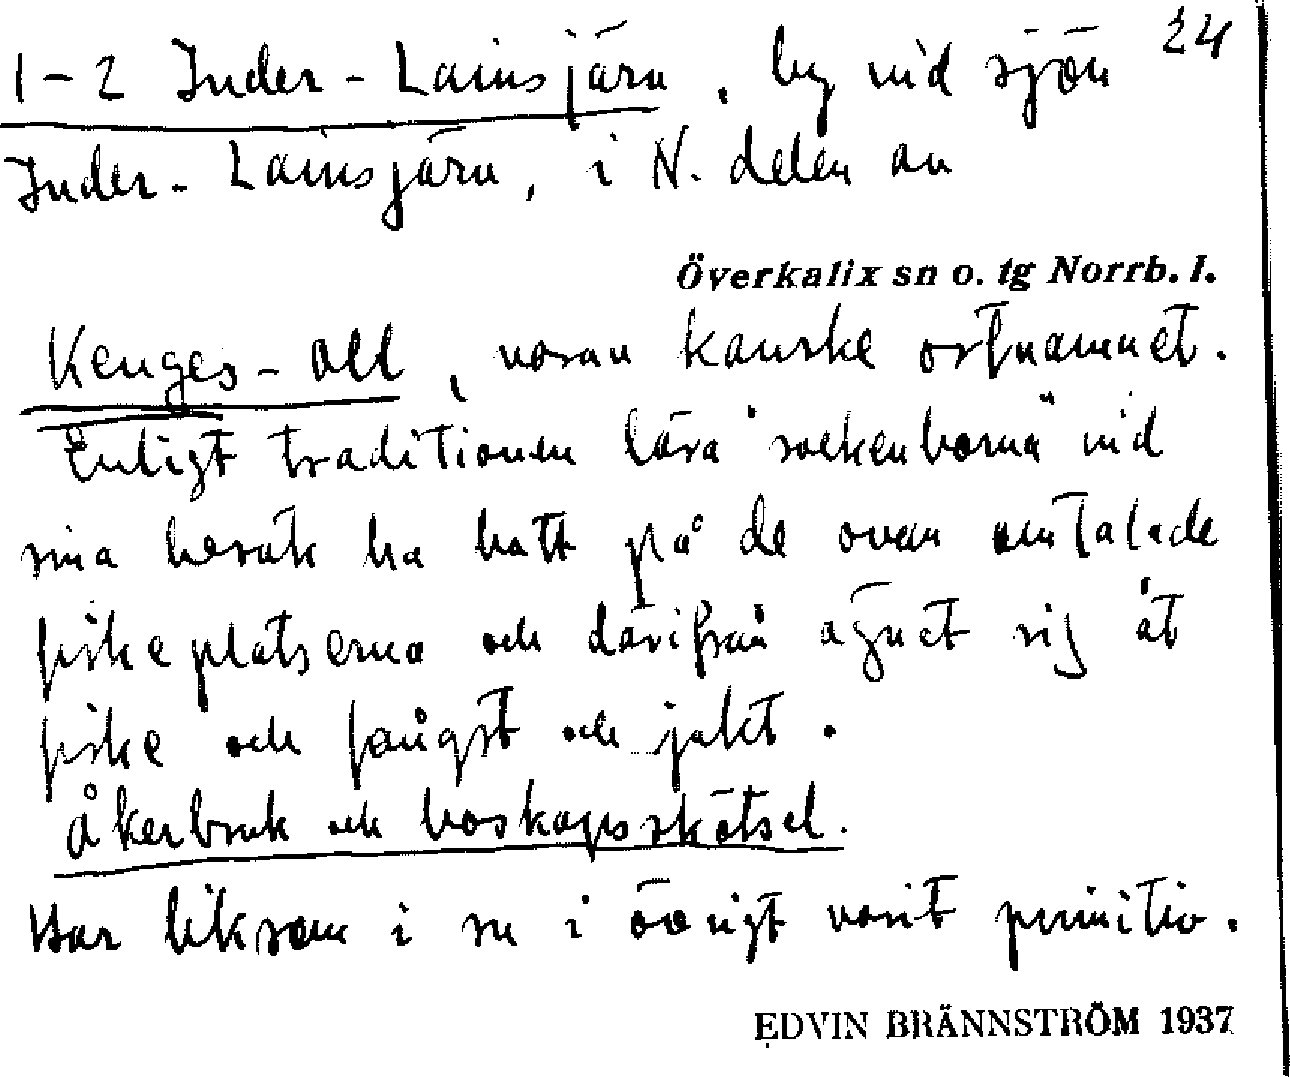 24
1-2 Inder-Lainsjärv, by vid sjön
Inder-Lainsjärv, i N. delen av
Överkalix sn o. tg Norrb. l.
Kenges-all, varav kanske ortnamnet.
Enligt traditionen lära "sockenborna" vid
sina besök ha hatt på de ovan omtalade
fiskeplatserna och därifrån ägnat sig åt
fiske och fångst och jakt.
Åkerbruk och boskapsskötsel.
Har liksom i sn i övrigt varit primitiv.
EDVIN BRÄNNSTRÖM 1937